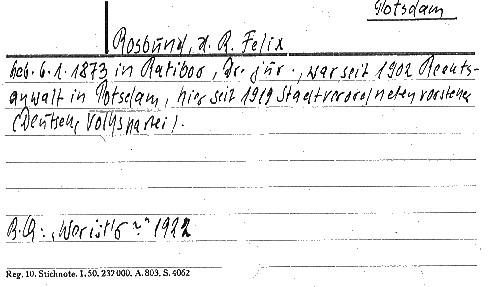 Potsdam
Rosbund, d. R. Felix
geb. 6. 1. 1873 in Ratibor, Dr. jur., war seit 1902 Rechts-
anwalt in Potsdam, hier seit 1919 Stadtverordnetenvorsteher
(Deutsche Volkspartei).
B.Q.: "Wer ist's?" 1922
Reg. 10. Stichnote. I. 50. 237 000. A. 803. S. 4062